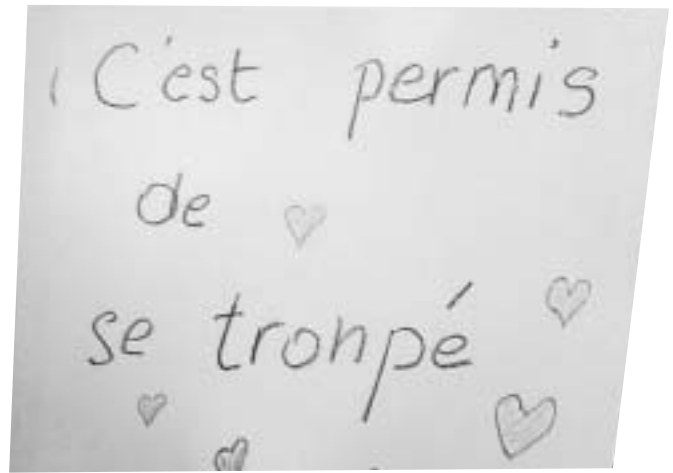 C'est permis
de
se tronpé